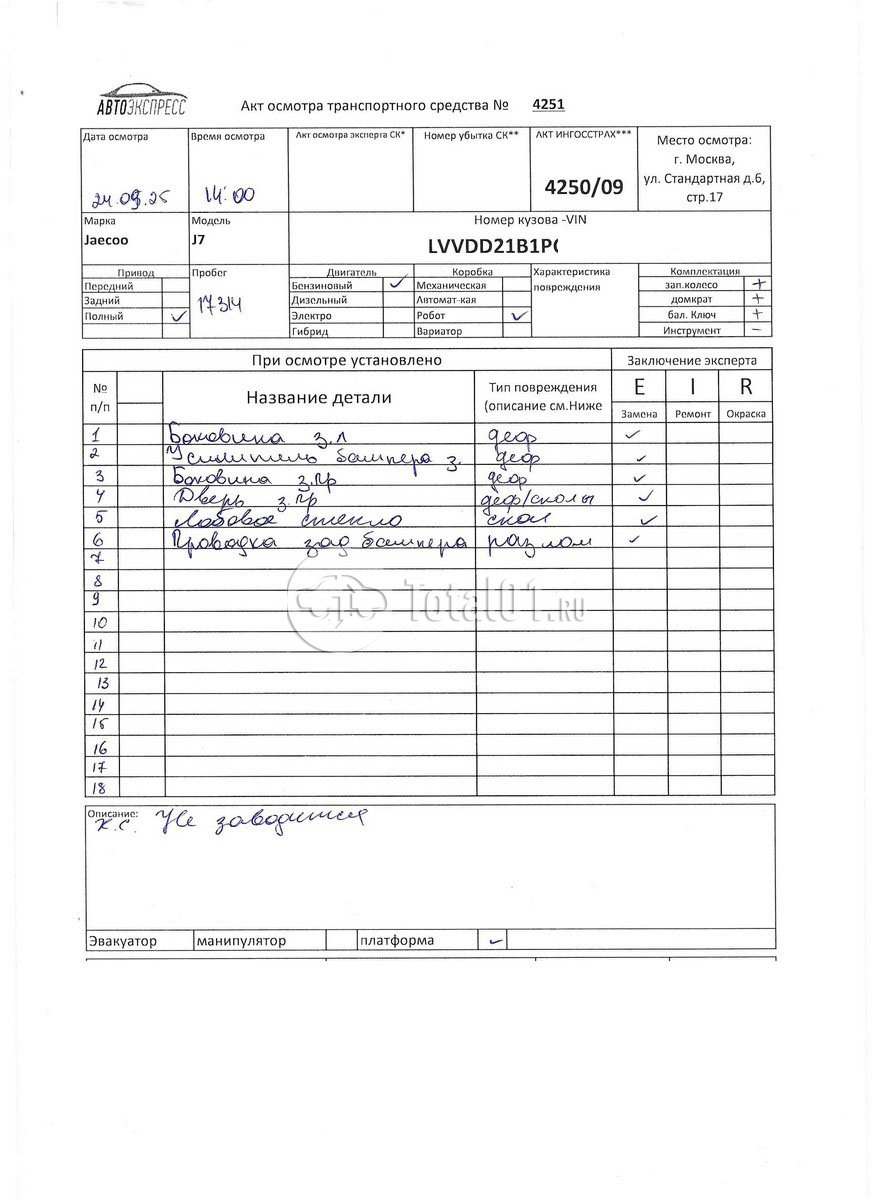 АВТОЭКСПРЕСС
Акт осмотра транспортного средства № 4251
Дата осмотра
24.09.25
Время осмотра
14:00
Акт осмотра эксперта СК*
Номер убытка СК**
АКТ ИНГОССТРАХ***
4250/09
Место осмотра:
г. Москва,
ул. Стандартная д.6,
стр.17
Марка
Jaecoo
Модель
J7
Номер кузова -VIN
LVVDD21B1P
Привод
Передний
Задний
Полный ✓
Пробег
17314
Двигатель
Бензиновый ✓
Дизельный
Электро
Гибрид
Коробка
Механическая
Автомат-кая
Робот ✓
Вариатор
Характеристика
повреждения
Комплектация
зап.колесо +
домкрат +
бал. Ключ +
Инструмент –
При осмотре установлено
Заключение эксперта
№
п/п
Название детали
Тип повреждения
(описание см.Ниже
E I R
Замена Ремонт Окраска
1 Боковина з.л деф ✓
2 Усилитель бампера з. деф ✓
3 Боковина з.пр деф ✓
4 Дверь з.пр деф/сколы ✓
5 Лобовое стекло скол ✓
6 Проводка зад бампера разлом ✓
7
8
9
10
11
12
13
14
15
16
17
18
Total01.RU
Описание:
х.с. Не заводится
Эвакуатор манипулятор платформа ✓